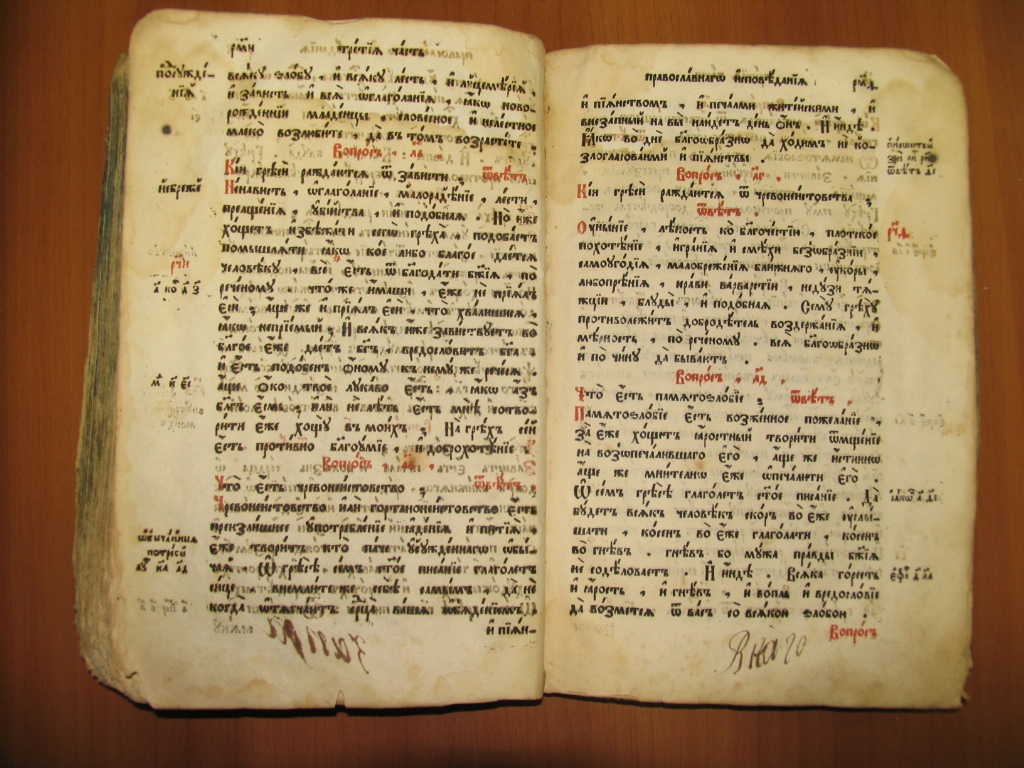 рми трéтїѧ чáсть
всѧ́кꙋ ѕло́бꙋ , и҆ всѧ́кꙋ ле́сть , и҆ лицемѣ́рїѧ̀ ,
и҆ за́висть и҆ всѧ̑ ѡ҆глаго́ланїѧ ꙗ҆́кѡ ново-
рожде́ннїи младе́нцы , слове́сное и҆ неле́стное
млеко̀ возлюби́те , да въ то́мъ возрасте́те .
Вопро́съ . ла .
Кі́и грѣсѝ ражда́ютсѧ ѿ за́висти . ѿвѣ́тъ
Не́нависть , ѡ҆глаго́ланїе , малорадѣ́нїе , ле́сти ,
преще́нїѧ , ᲂу҆бі́йства , и҆ подѡ́бнаѧ . Но и҆́же
хо́щетъ и҆збѣжа́ти сегѡ̀ грѣха̀ , подоба́етъ
помышлѧ́ти ꙗ҆́кѡ ко́е либо бл҃го́е дае́тсѧ
человѣ́кꙋ , всѐ є҆́сть ѿ бл҃года́ти бж҃їѧ , по
рече́номꙋ . что́ же и҆́маши , є҆гѡ́же не прїѧ́лъ
є҆сѝ , а҆́ще же и҆ прїѧ́лъ є҆сѝ , что̀ хва́лишисѧ ,
ꙗ҆́кѡ непрїе́мый ; И҆ всѧ́къ и҆́же зави́ствꙋетъ во
бл҃го́е є҆́же дае́тъ бг҃ъ , вредосло́витъ бг҃а
и҆ є҆́сть подо́бенъ ѻ҆́номꙋ къ немꙋ́ же рече́сѧ .
а҆́ще ѻ҆́ко твоѐ лꙋка́во є҆́сть : ꙗ҆́кѡ а҆́зъ
бл҃гъ є҆́смь ; и҆лѝ не лѣ́ть є҆́сть мнѣ̀ сотво-
ри́ти є҆́же хощꙋ̀ въ мои́хъ ; На грѣ́хъ се́й
є҆́сть проти́вно бл҃гоꙋ́мїе , и҆ доброхотѣ́нїе .
Вопро́съ
Что̀ є҆́сть чревонеи́стовство ; ѿвѣ́тъ
Чревонеи́стовство и҆лѝ гортанонеи́стовство є҆́сть
преизли́шнее ᲂу҆потребле́нїе ꙗ҆де́нїѧ и҆ питїѧ̀ ,
є҆́же твори́тъ кто̀ па́че ᲂу҆сꙋжде́ннагѡ ѻ҆бы́-
чаѧ . Ѽ грѣсѣ̀ се́мъ ст҃о́е писа́нїе глаго́летъ
си́це , внемли́те же себѣ̀ самѣ́мъ , да нѐ
когда̀ ѡ҆тѧгча́ютъ срⷣца̀ ва̑ша ѻ҆б̾ѧде́нїемъ
и҆ пїѧ́н-
погꙋжде́-
нїѧ
небреже́
ѡ҆бы́чаиныѧ
потре́бы
Зимри
правосла́внагѡ и҆сповѣ́данїѧ
и҆ пїѧ́нствомъ , и҆ печа́лми жите́йскими , и҆
внеза́пный на вы̀ на́йдетъ де́нь ѻ҆́нъ . И҆ и҆ндѣ̀ .
Ꙗ҆́кѡ во днѐ бл҃гоѡбра́знѡ да хо́димъ не ко-
злогласова́нми и҆ пїѧ́нствы
Вопро́съ . лг .
Кі́и грѣсѝ ражда́ютсѧ ѿ чревонеи́стовства .
ѿвѣ́тъ .
Оу҆ны́нїе , лѣ́ность ко бл҃гоче́стїи , пло́тское
похотѣ́нїе , и҆гра̑нїѧ и҆ смѣ́хи безѡбра́знїи ,
самоꙋго́дїѧ , малобреже́нїѧ бли́жнѧгѡ , ᲂу҆кѡ́ры ,
любопрѣ̑нїѧ , нра́ви ва́рварстїи , недꙋ́зи тѧ́-
жцїи , блꙋ́ды и҆ подѡ́бнаѧ . Семꙋ̀ грѣхꙋ̀
противолежи́тъ добродѣ́тель воздержа́нїѧ , и҆
мѣ́рность , по рече́номꙋ . всѧ̑ бл҃гоѡбра́знѡ
и҆ по чи́нꙋ да быва́ютъ .
Вопро́съ . лд .
Что̀ є҆́сть памѧтоѕло́бїе ; ѿвѣ́тъ .
Памѧтоѕло́бїе є҆́сть возже́нное пожела́нїе ,
за є҆́же хо́щетъ ꙗ҆́ростный твори́ти ѿмще́нїе
на возѡпеча́лившаго є҆го̀ , а҆́ще же и҆́стиннѡ
а҆́ще же мни́телнѡ є҆́же ѡ҆печа́лити є҆го̀ .
Ѽ се́мъ грѣсѣ̀ глаго́летъ ст҃о́е писа́нїе . Да
бꙋ́детъ всѧ́къ человѣ́къ ско́ръ во є҆́же ᲂу҆слы́-
шати , ко́сенъ во є҆́же глаго́лати , ко́сенъ
во гнѣ́въ . гнѣ́въ бо мꙋ́жа пра́вды бж҃їѧ
не содѣ́ловаетъ . И҆ и҆ндѣ̀ . Всѧ́ка го́ресть
и҆ ꙗ҆́рость , и҆ гнѣ́въ , и҆ во́пль и҆ вредосло́вїе
да во́зметсѧ ѿ ва́съ со всѧ́кою ѕло́бою .
Вопро́съ